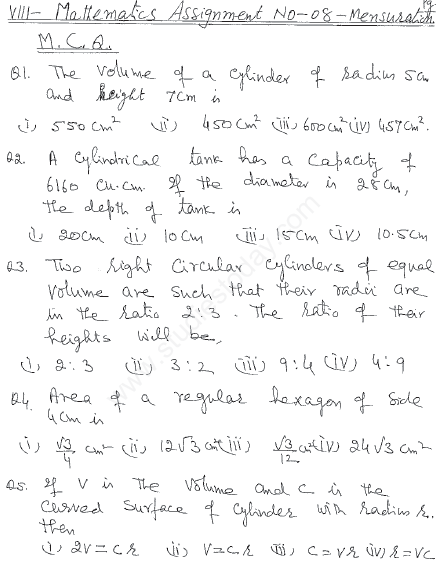 VIII- Mathematics Assignment No-08-Mensuration
M.C.Q.
Q1. The volume of a cylinder of radius 5cm
and height 7cm is
(i) 550cm² (ii) 450cm² (iii) 600cm² (iv) 457cm².
Q2. A cylindrical tank has a capacity of
6160 cu.cm. If the diameter is 28cm,
the depth of tank is
(i) 20cm (ii) 10cm (iii) 15cm (iv) 10.5cm
Q3. Two right circular cylinders of equal
volume are such that their radii are
in the ratio 2:3. The ratio of their
heights will be,
(i) 2:3 (ii) 3:2 (iii) 9:4 (iv) 4:9
Q4. Area of a regular hexagon of side
4cm is
(i) √3/4 cm² (ii) 12√3 cm² (iii) √3/12 cm² (iv) 24√3 cm²
Q5. If V is the volume and C is the
curved surface of cylinder with radius r.
then
(i) 2V=Cr (ii) V=Cr (iii) C=Vr (iv) r=VC
www.studiestoday.com